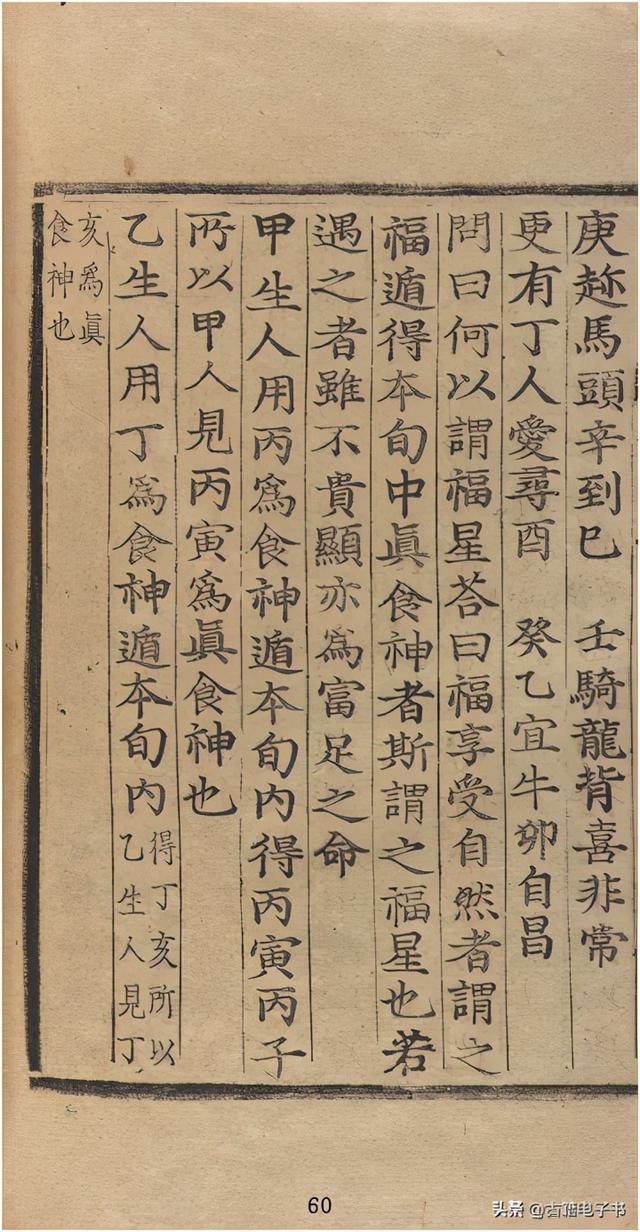 庚趂馬頭辛到巳　壬騎龍背喜非常
更有丁人愛尋酉　癸乙宜牛卯自昌
問曰何以謂福星荅曰福享受自然者謂之
福遁得本旬中眞食神者斯謂之福星也若
遇之者雖不貴顯亦為富足之命
甲生人用丙爲食神遁本旬內得丙寅丙子
所以甲人見丙寅爲眞食神也
乙生人用丁爲食神遁本旬內得丁亥所以
乙生人見丁
亥爲眞
食神也
60
头条@古籍电子书